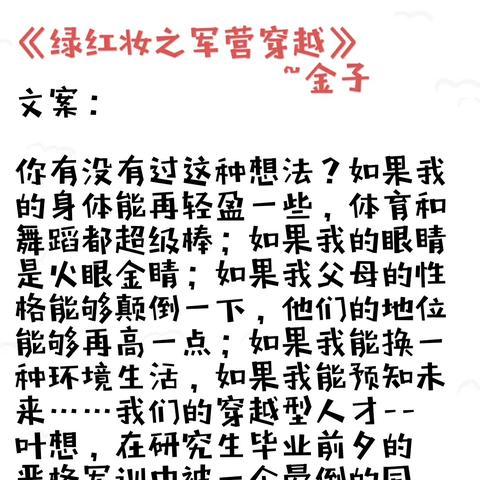 《绿红妆之军营穿越》
~金子
文案：
你有没有过这种想法？如果我
的身体能再轻盈一些，体育和
舞蹈都超级棒；如果我的眼睛
是火眼金睛；如果我父母的性
格能够颠倒一下，他们的地位
能够再高一点；如果我能换一
种环境生活，如果我能预知未
来……我们的穿越型人才--
叶想，在研究生毕业前夕的
严格军训中被一个最倒的同